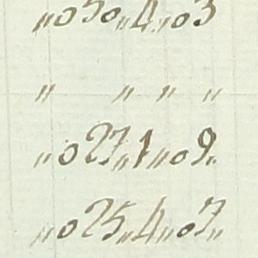 „050„4„03
„ „ „ „
„027„1„09„
„025„4„07„